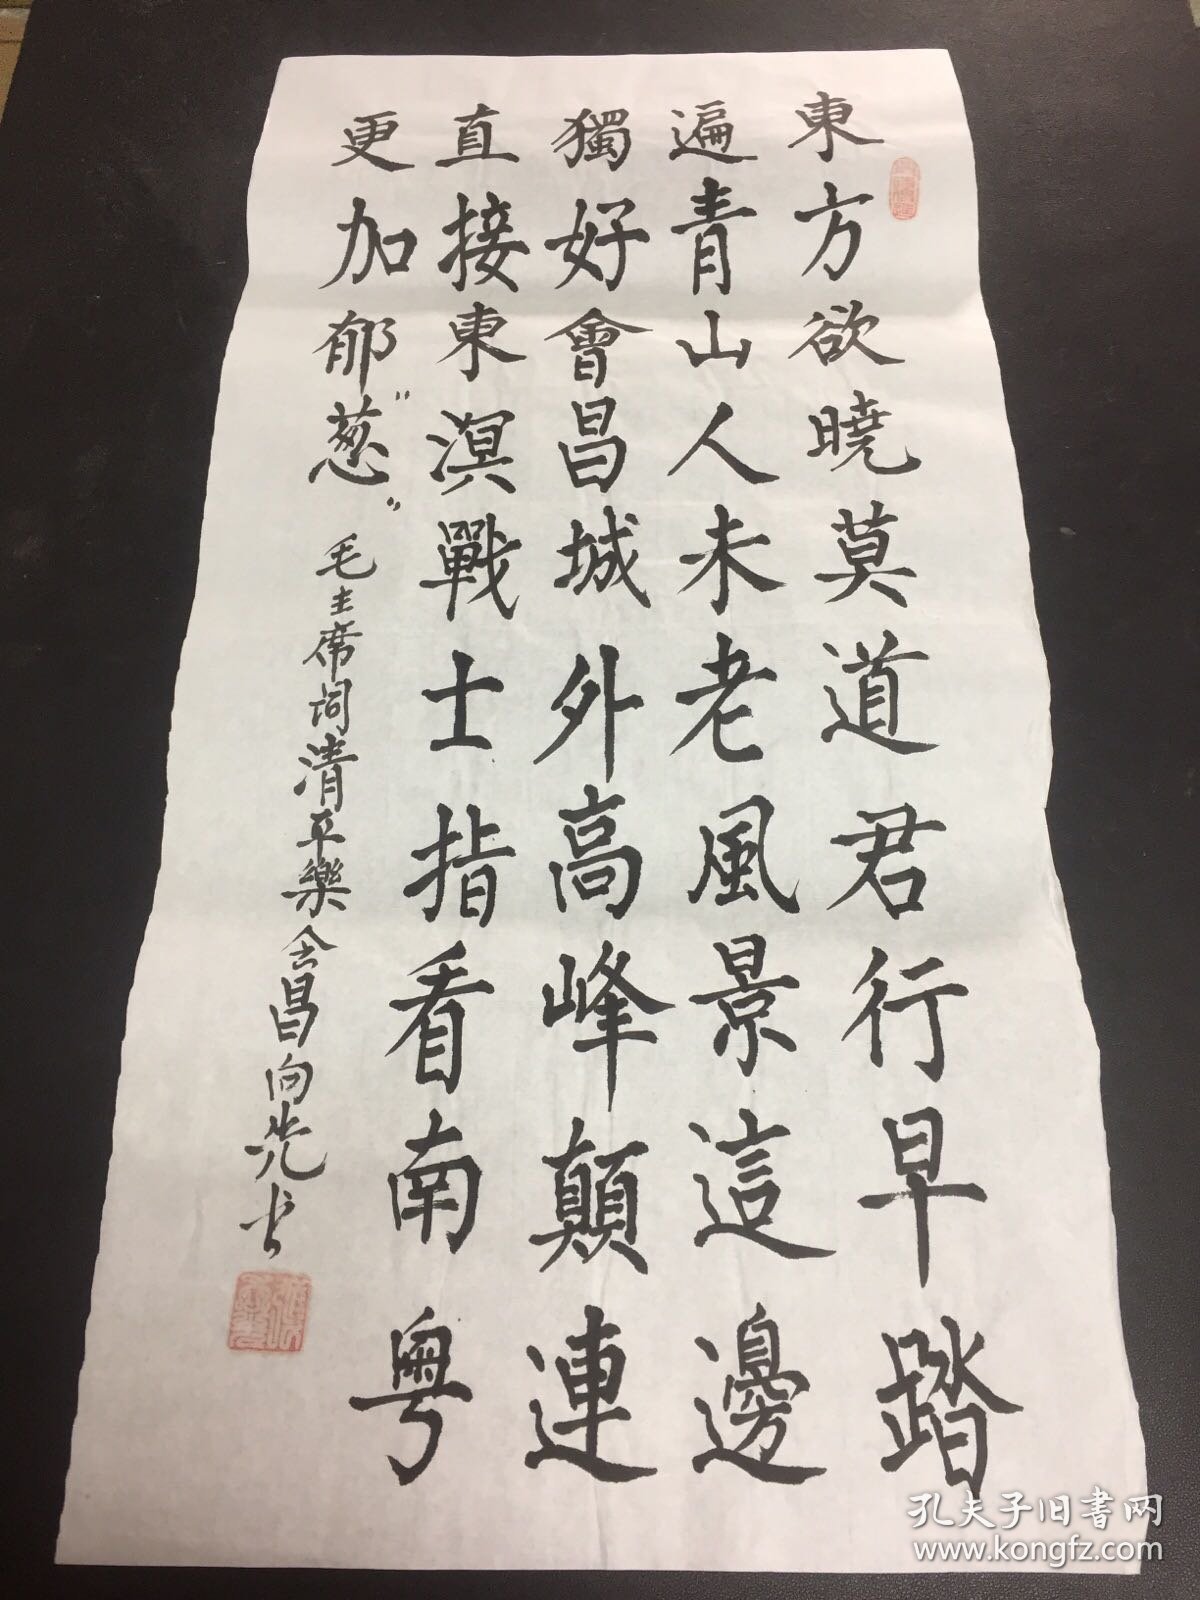 東方欲曉莫道君行早踏
遍青山人未老風景這邊
獨好會昌城外高峰顛連
直接東溟戰士指看南粵
更加郁葱""毛主席词清平樂会昌向光书
孔夫子旧書网
www.kongfz.com